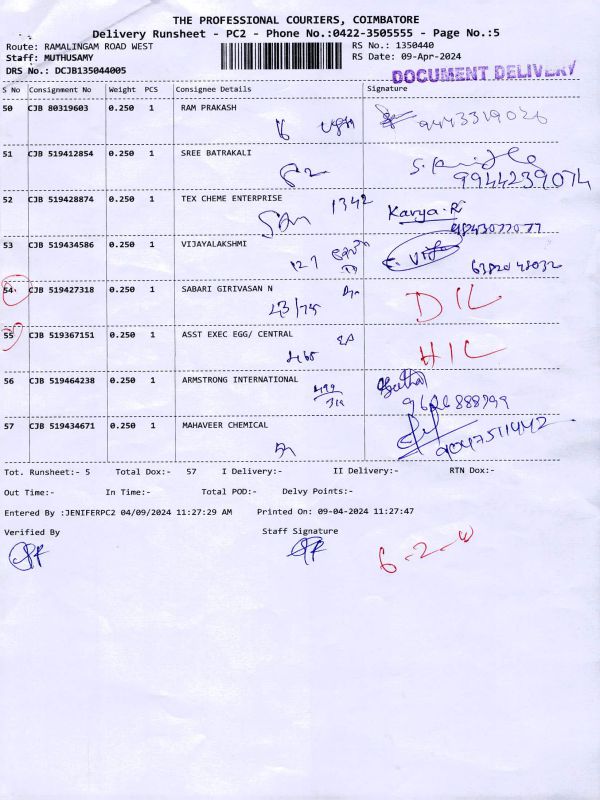 THE PROFESSIONAL COURIERS, COIMBATORE
Delivery Runsheet - PC2 - Phone No.:0422-3505555 - Page No.:5
Route: RAMALINGAM ROAD WEST RS No.: 1350440
Staff: MUTHUSAMY RS Date: 09-Apr-2024
DRS No.: DCJB135044005 DOCUMENT DELIVERY
S No Consignment No Weight PCS Consignee Details Signature
50 CJB 80319603 0.250 1 RAM PRAKASH
9443319026
51 CJB 519412854 0.250 1 SREE BATRAKALI
9944239074
52 CJB 519428874 0.250 1 TEX CHEME ENTERPRISE
1342 Karya.R
9843077077
53 CJB 519434586 0.250 1 VIJAYALAKSHMI
127 6382048032
54 CJB 519427318 0.250 1 SABARI GIRIVASAN N
23/75 DIL
55 CJB 519367151 0.250 1 ASST EXEC EGG/ CENTRAL
HIL
56 CJB 519464238 0.250 1 ARMSTRONG INTERNATIONAL
57 CJB 519434671 0.250 1 MAHAVEER CHEMICAL
Tot. Runsheet:- 5 Total Dox:- 57 I Delivery:- II Delivery:- RTN Dox:-
Out Time:- In Time:- Total POD:- Delvy Points:-
Entered By :JENIFERPC2 04/09/2024 11:27:29 AM Printed On: 09-04-2024 11:27:47
Verified By Staff Signature